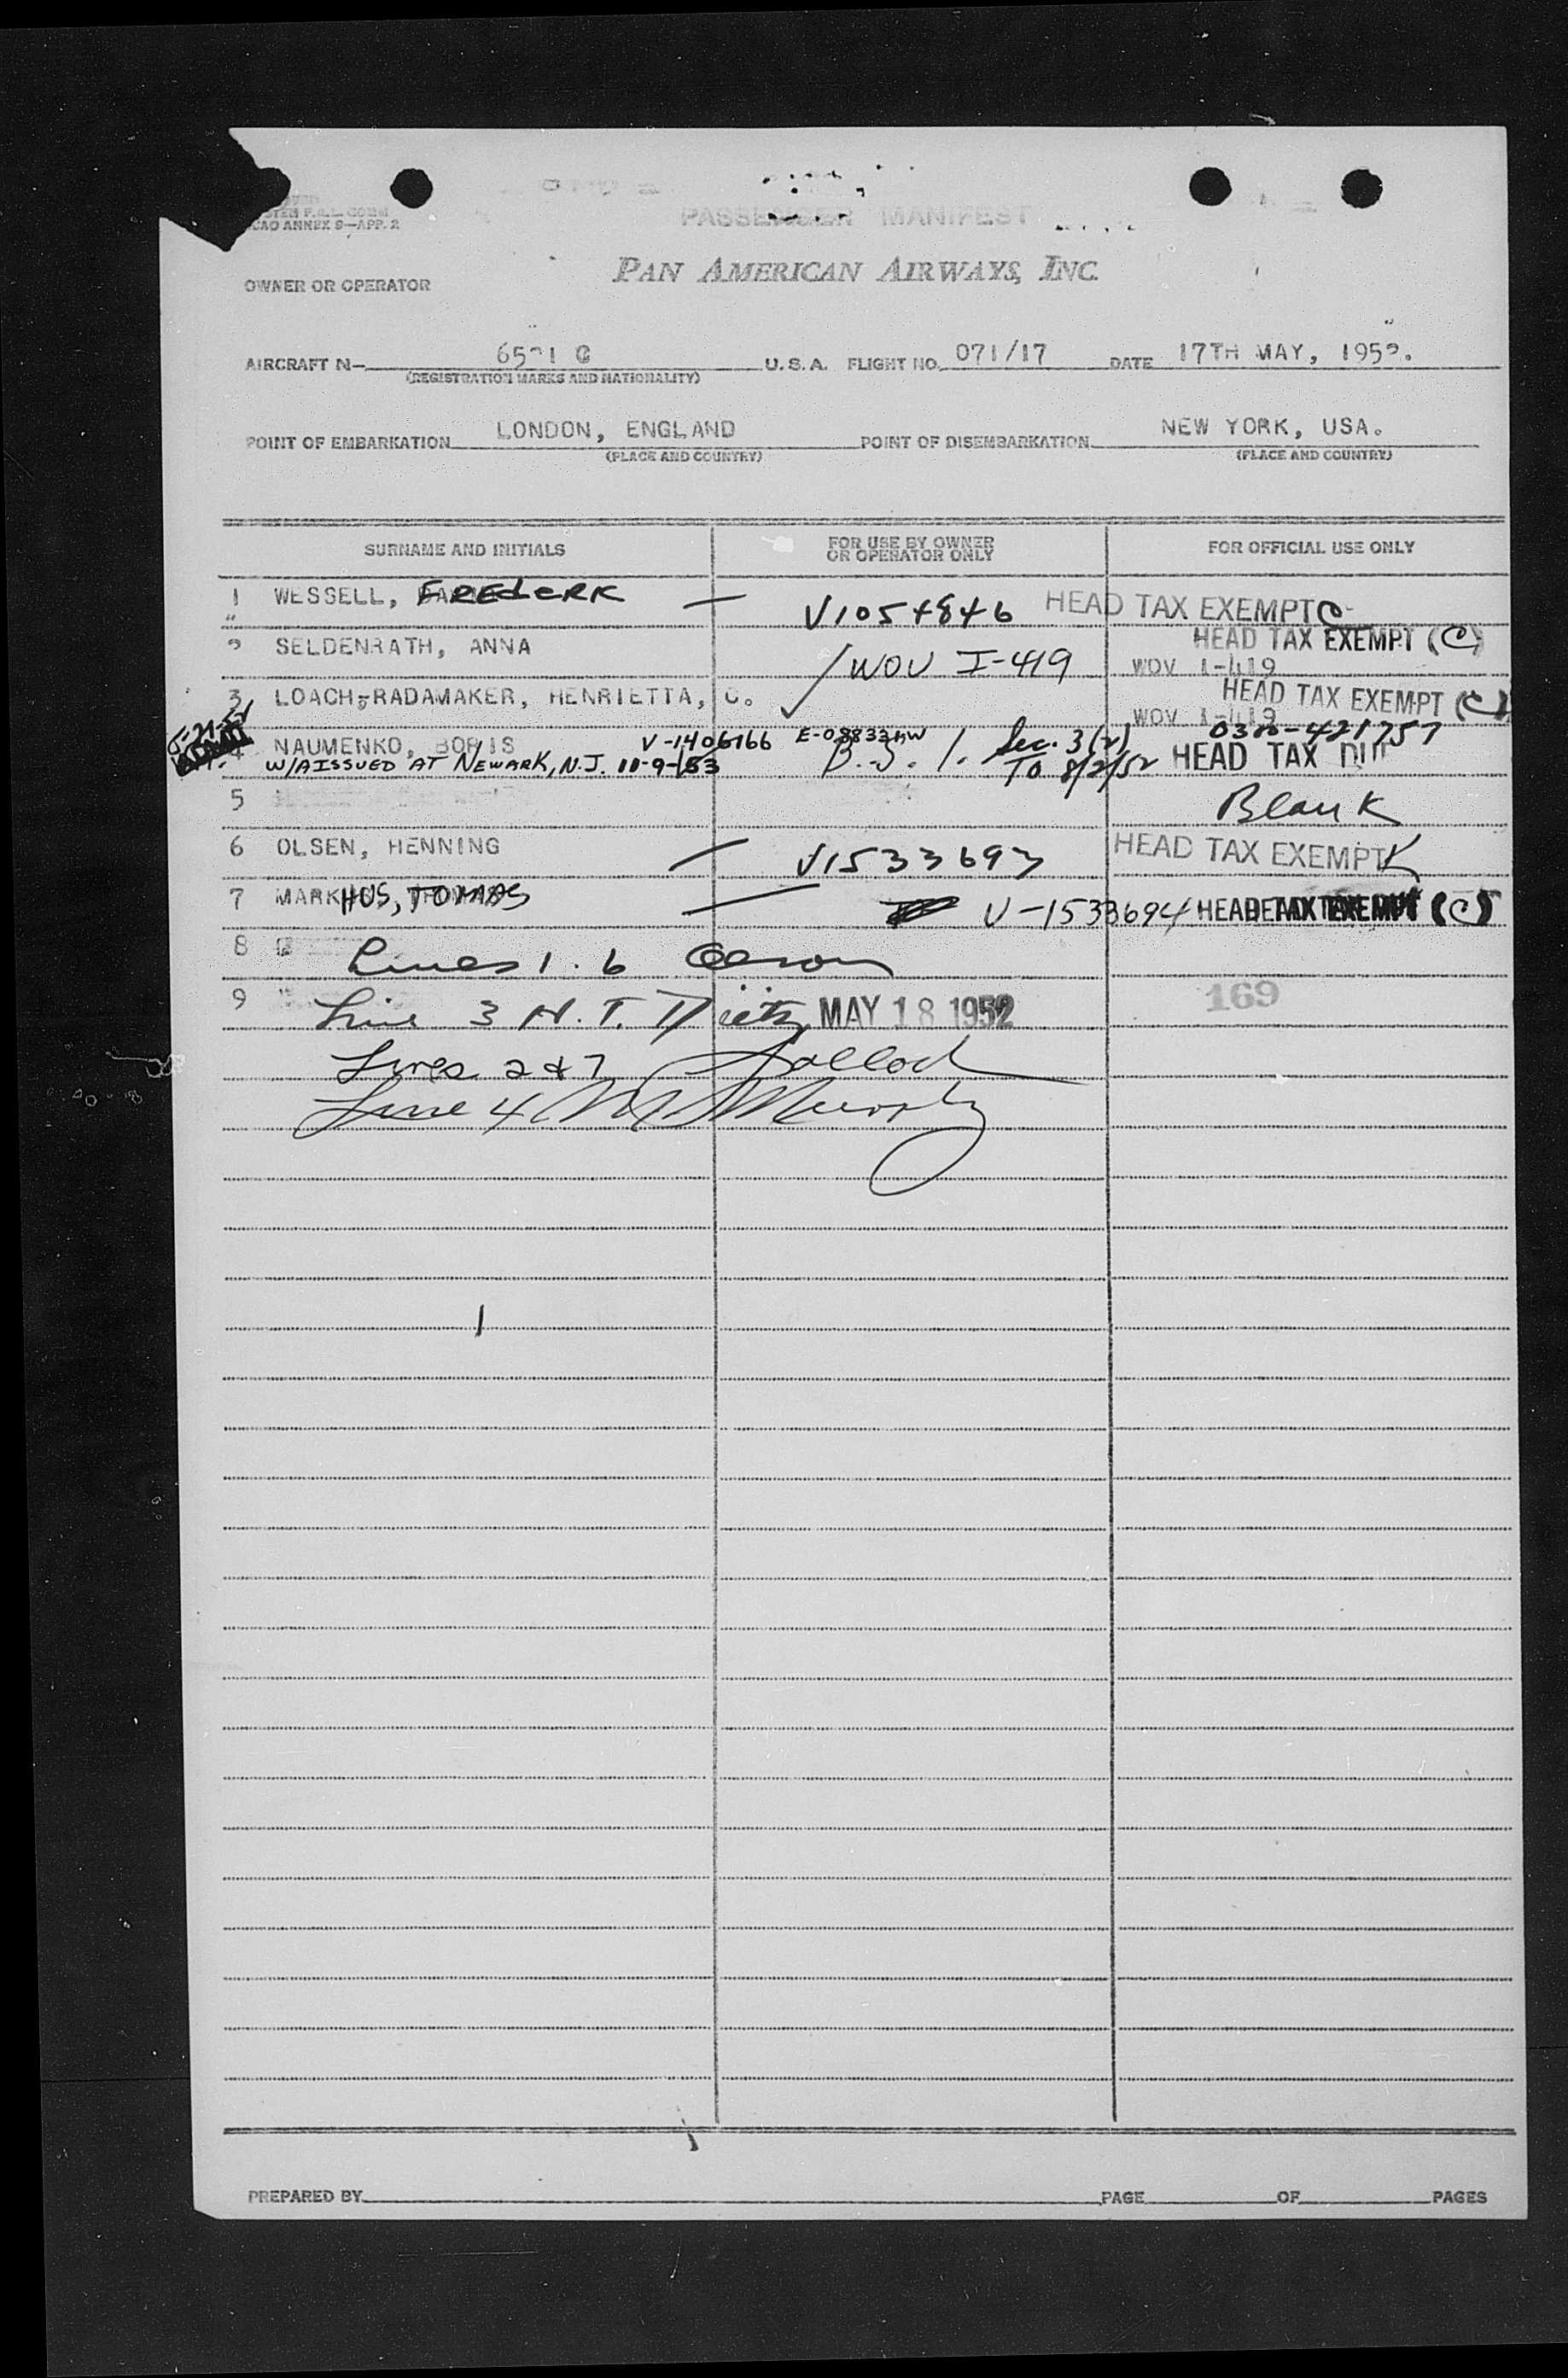 PASSENGER MANIFEST
ICAO ANNEX 9—APP. 2
OWNER OR OPERATOR PAN AMERICAN AIRWAYS, INC.
AIRCRAFT N— U.S.A. FLIGHT NO. 071/17 DATE 17TH MAY, 1952.
(REGISTRATION MARKS AND NATIONALITY)
POINT OF EMBARKATION LONDON, ENGLAND POINT OF DISEMBARKATION NEW YORK, USA.
(PLACE AND COUNTRY) (PLACE AND COUNTRY)
SURNAME AND INITIALS FOR USE BY OWNER OR OPERATOR ONLY FOR OFFICIAL USE ONLY
1 WESSELL, FREDERK — V1054846 HEAD TAX EXEMPT C
2 SELDENRATH, ANNA WOV I-419 HEAD TAX EXEMPT (C)
WOV 1-419
3 LOACH-RADAMAKER, HENRIETTA, C. HEAD TAX EXEMPT (C)
WOV 1-419
4 NAUMENKO, BORIS V-1406166 0300-421757
W/A ISSUED AT NEWARK, N.J. 10-9-53 B.S.I. Sec. 3(2) TO 8/2/52 HEAD TAX DUE
5 Blank
6 OLSEN, HENNING — V1533693 HEAD TAX EXEMPT K
7 MARKHUS, TOMAS — V-1533694 HEAD TAX EXEMPT (C)
8 Lines 1. 6 Olson
9 Line 3 N. T. Dietz MAY 18 1952 169
Lines 2 & 7
Line 4 Murphy
PREPARED BY PAGE OF PAGES